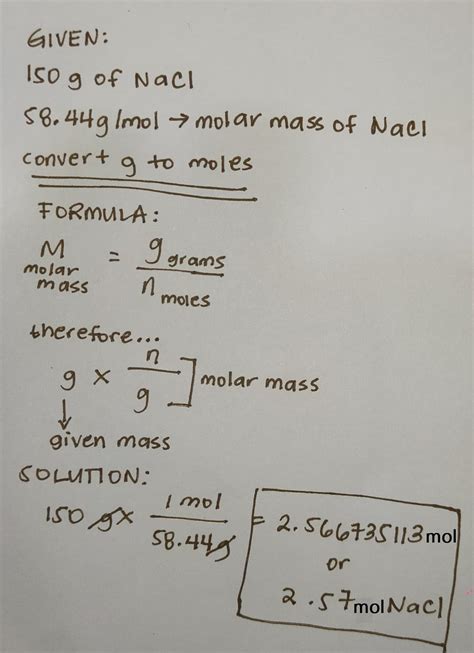 GIVEN:
150 g of NaCl
58.44g/mol → molar mass of NaCl
convert g to moles
FORMULA:
M molar mass = g grams / n moles
therefore...
g × n / g ] molar mass
↓
given mass
SOLUTION:
150 g × 1 mol / 58.44g = 2.566735113 mol
or
2.57 mol NaCl